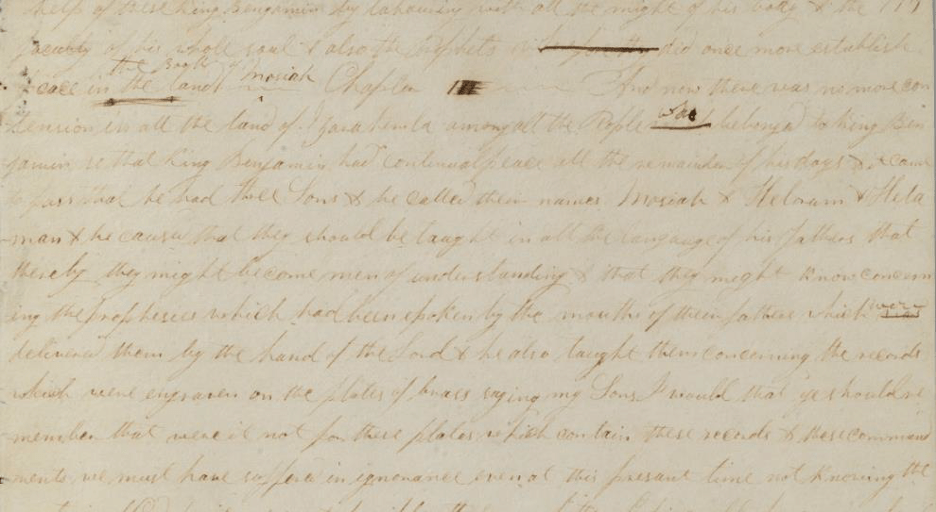 help of these king Benjamin by labouring with all the might of his body & the
faculty of his whole soul & also the Prophets did once more establish
peace in the land the Book of Mosiah Chapter III And now there was no more con
tension in all the land of Zarahemla among all the People who belonged to king Ben
jamin so that king Benjamin had continual peace all the remainder of his days & it came
to pass that he had three Sons & he called their names Mosiah & Helorum & Hela
man & he caused that they should be taught in all the language of his fathers that
thereby they might become men of understanding & that they might know concern
ing the prophesies which had been spoken by the mouths of their fathers which were
delivered them by the hand of the Lord & he also taught them concerning the records
which were engraven on the plates of brass saying my Sons I would that ye should re
member that were it not for these plates which contain these records & these command
ments we must have suffered in ignorance even at this present time not knowing the